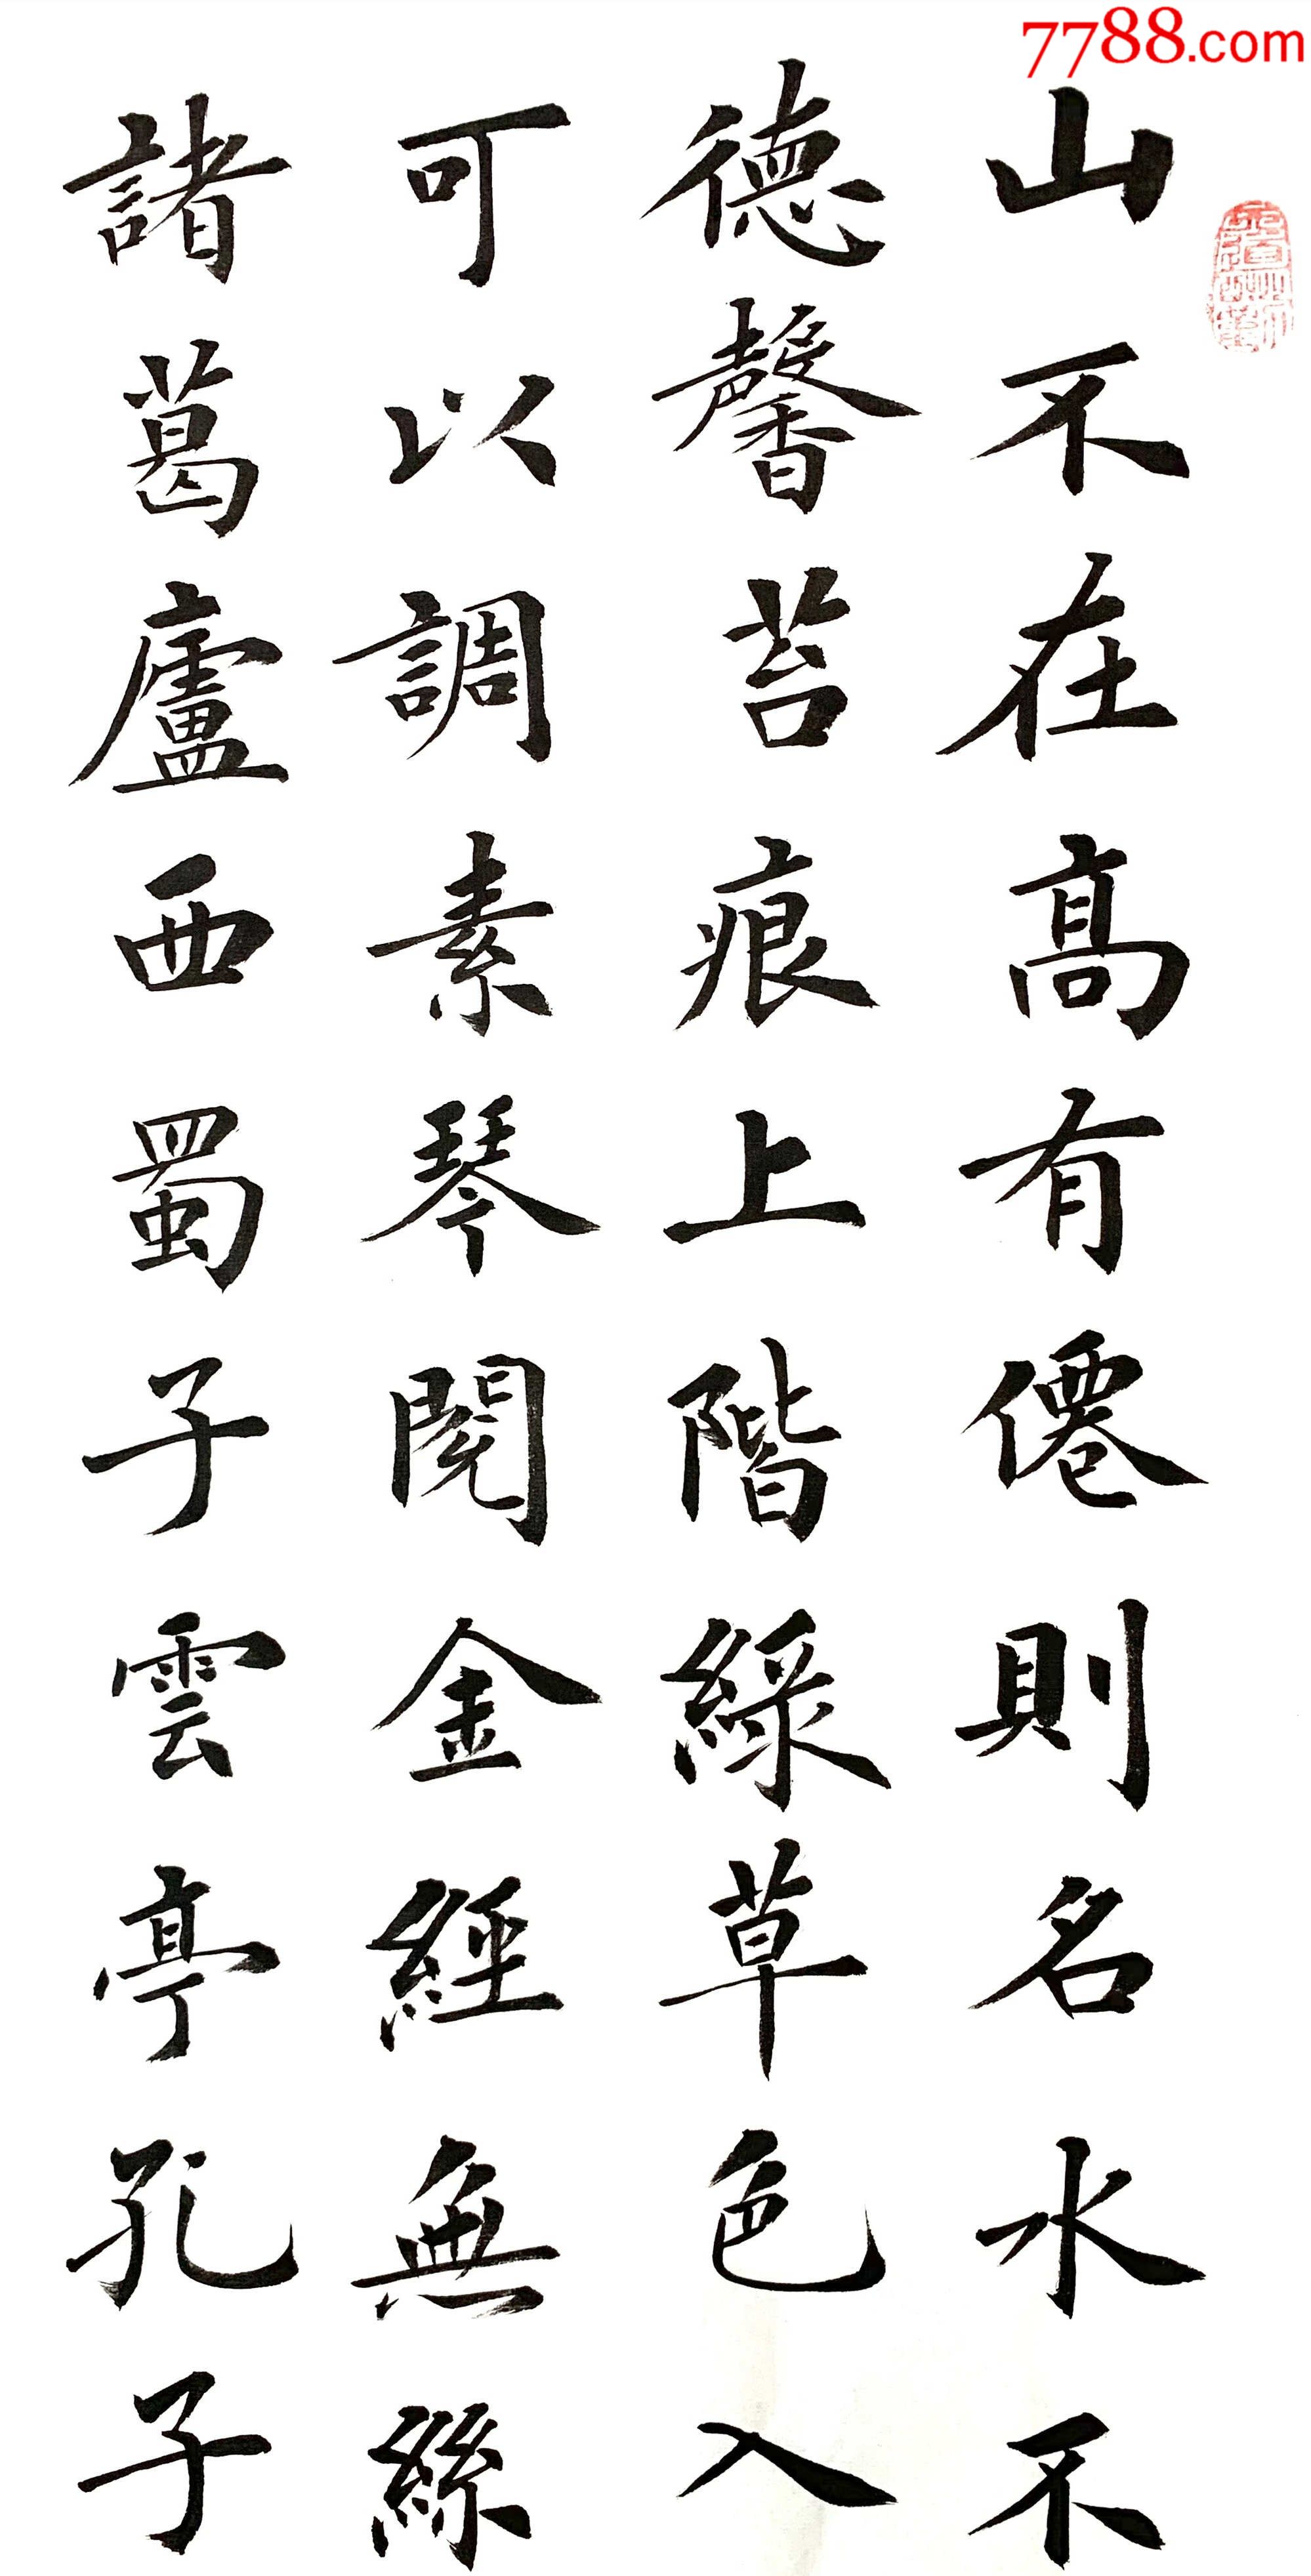 7788.com
山不在高有僊則名水不
德馨苔痕上階綠草色入
可以調素琴閱金經無絲
諸葛廬西蜀子雲亭孔子